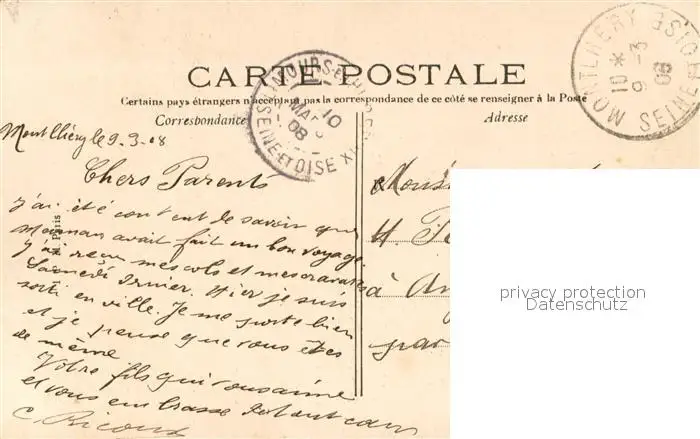 CARTE POSTALE
Certains pays étrangers n'acceptant pas la correspondance de ce côté se renseigner à la Poste
Correspondance
Adresse
MONTLHERY
10 * 9 -3 08
SEINE-ET-OISE
10 MARS 08
SEINE-ET-OISE
Montlhéry le 9-3-08
Chers Parents
j'ai été content de savoir que
Maman avait fait un bon voyage.
J'ai reçu mes cols et mes cravates
Samedi dernier. Hier je suis
sorti en ville. Je me porte bien
et je pense que vous êtes
de même
Votre fils qui vous aime
et vous embrasse de tout cœur
C.
Paris
à
par
privacy protection
Datenschutz